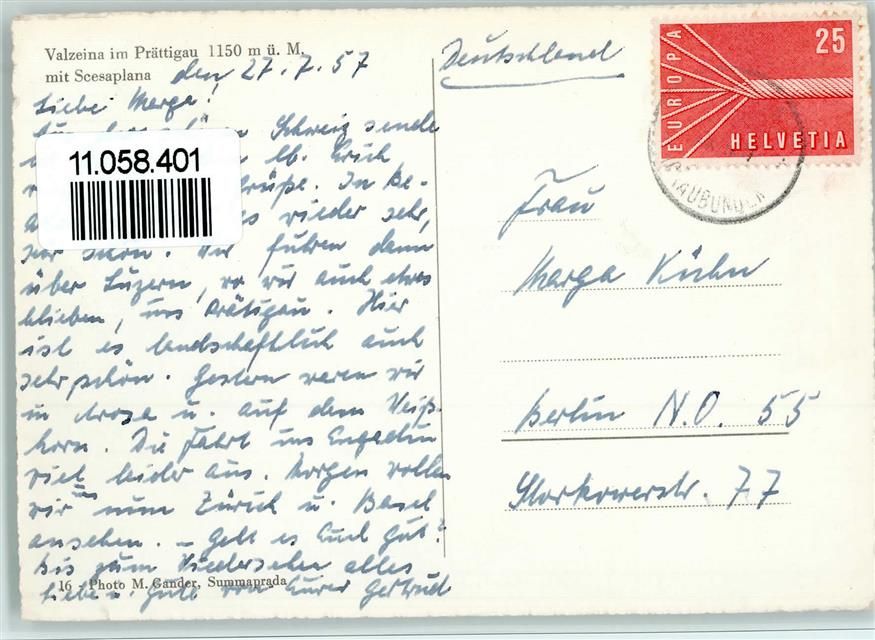 Valzeina im Prättigau 1150 m ü. M.
mit Scesaplana
den, 27.7.57
Liebe Marga!
Schweiz sende
lb. Erich
Grüße. In Be-
es wieder sehr,
sehr schön. Wir fuhren dann
über Luzern, wo wir auch etwas
blieben, ins Prätigau. Hier
ist es landschaftlich auch
sehr schön. Gestern waren wir
in Arosa u. auf dem Weiß-
horn. Die Fahrt ins Engadin
fiel leider aus. Morgen wollen
wir uns nun Zürich u. Basel
ansehen. – Geht es Euch gut?
Bis zum Wiedersehen alles
Liebe u. Gute von Eurer Gertrud
16 - Photo M. Gander, Summaprada
11.058.401
Deutschland
EUROPA
25
HELVETIA
Frau
Marga Kühn
Berlin N.O. 55
Storkowerstr. 77